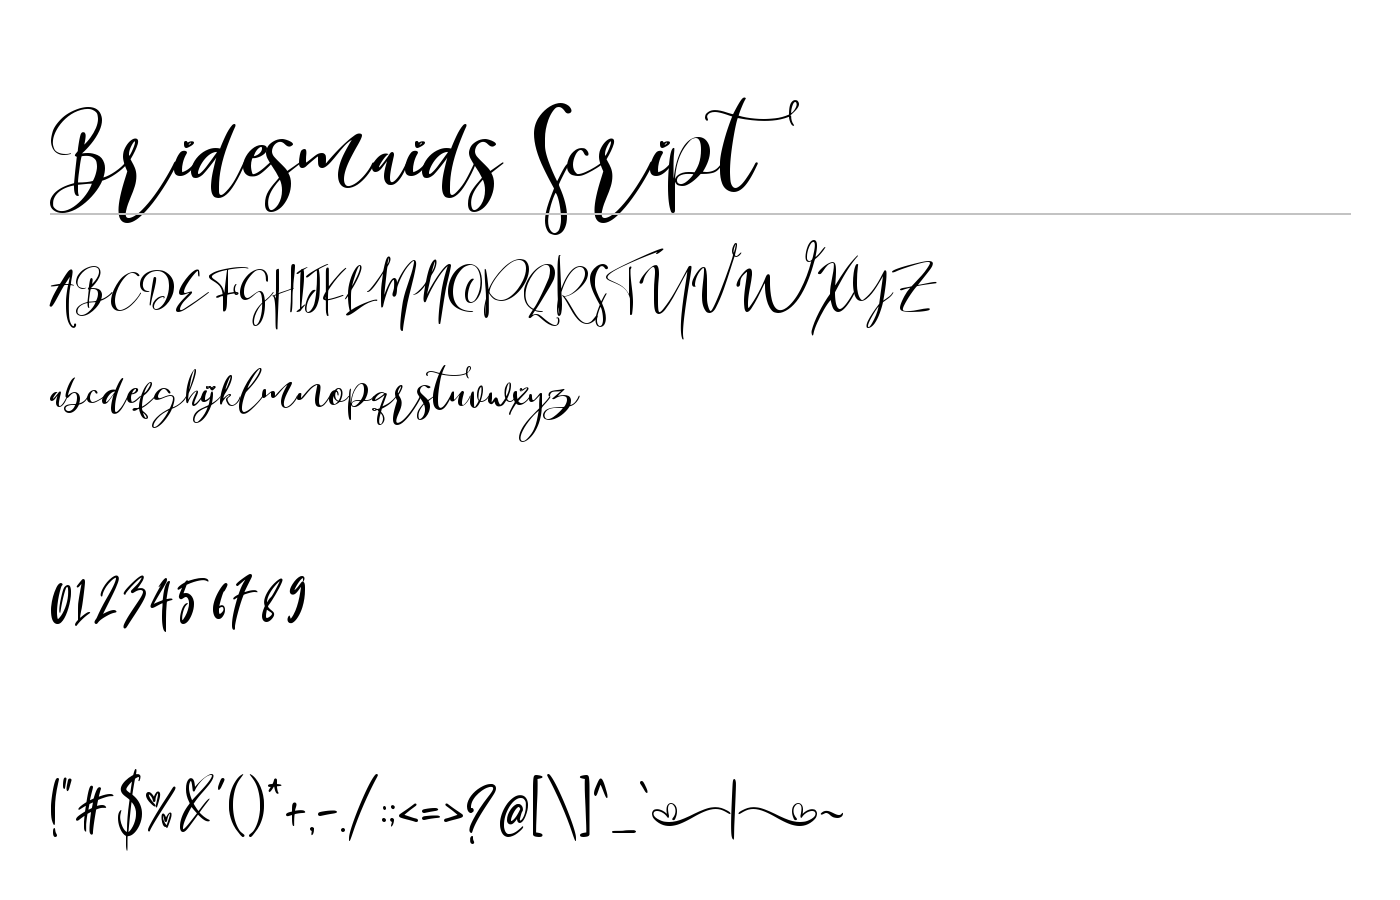 Bridesmaids Script
ABCDEFGHIJKLMNOPQRSTUVWXYZ
abcdefghijklmnopqrstuvwxyz
0123456789
!"#$%&'()*+,-./:;<=>?@[\]^_`{|}~